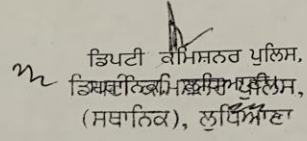 ਡਿਪਟੀ ਕਮਿਸ਼ਨਰ ਪੁਲਿਸ,
ਪੁਲਿਸ,
(ਸਥਾਨਿਕ), ਲੁਧਿਆਣਾ